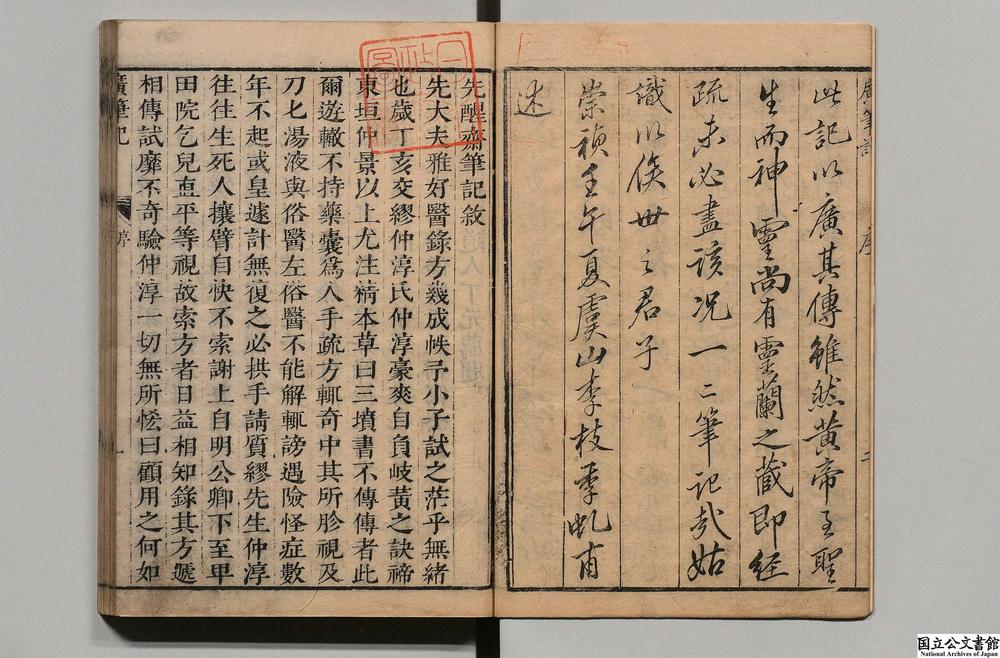 此記以廣其傳雖然黃帝至聖
生而神靈尚有靈蘭之藏即經
疏未必盡該况一二筆記哉姑
識以俟世之君子
崇禎壬午夏虞山李枝季虬甫
述
先醒齋筆記敘
先大夫雅好醫錄方幾成帙予小子試之茫乎無緒
也歲丁亥交繆仲淳氏仲淳豪爽自負岐黃之訣禘
東垣仲景以上尤注精本草曰三墳書不傳傳者此
爾遊轍不持藥囊爲人手疏方輒奇中其所胗視及
刀匕湯液與俗醫左俗醫不能解輒謗遇險怪症數
年不起或皇遽計無復之必拱手請質繆先生仲淳
往往生死人攘臂自快不索謝上自明公卿下至卑
田院乞兒直平等視故索方者日益相知錄其方遞
相傳試靡不奇驗仲淳一切無所恡曰顧用之何如
廣筆記
序
一
国立公文書館
National Archives of Japan